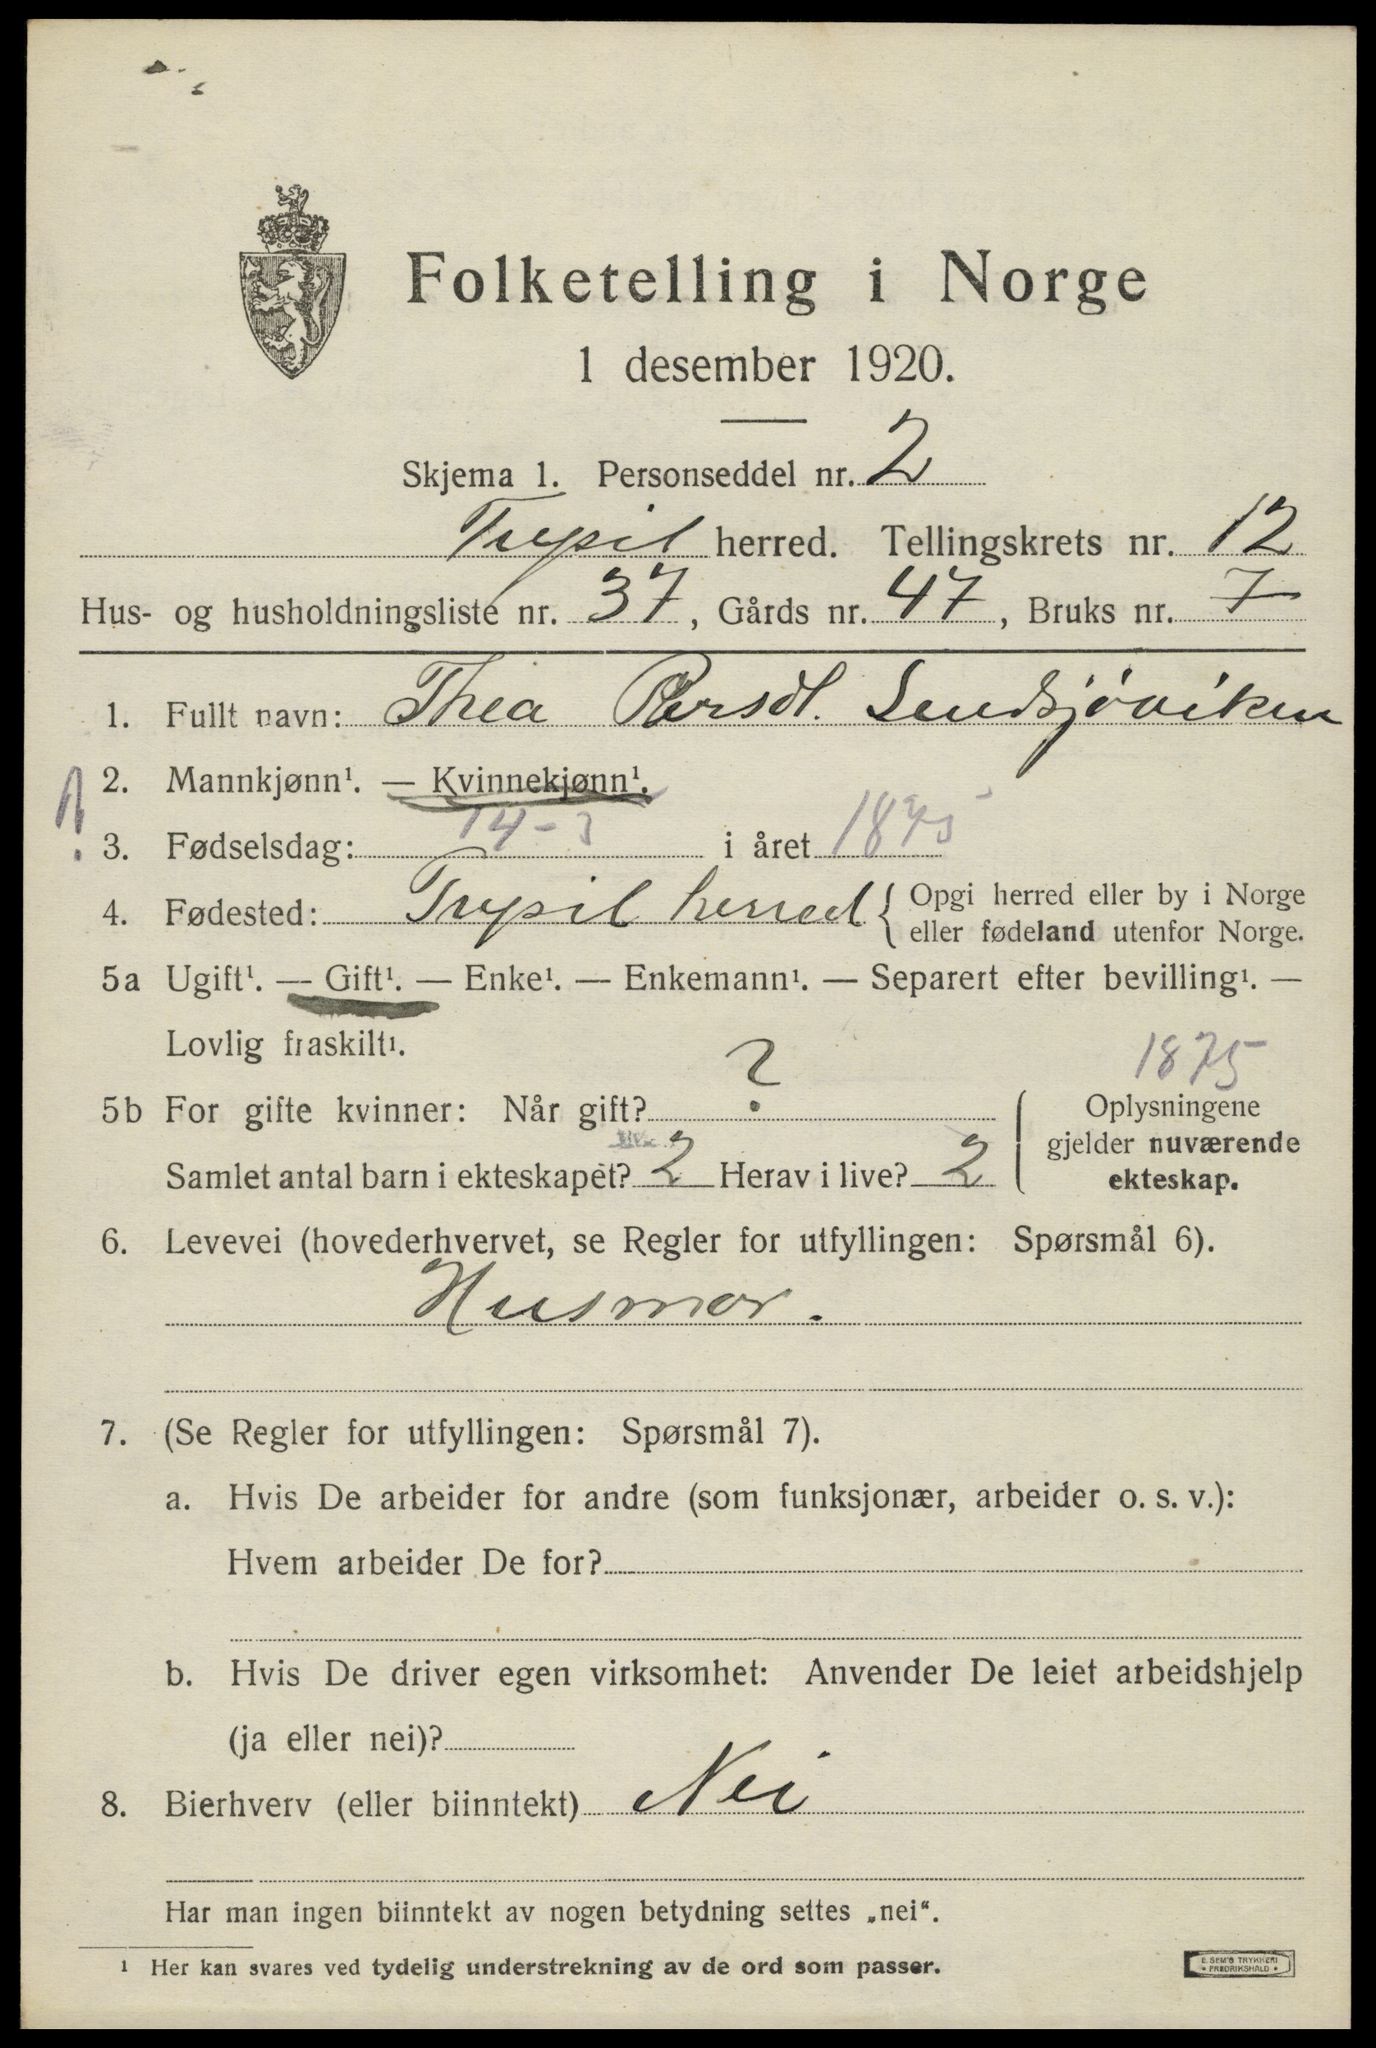 Folketelling i Norge
1 desember 1920.
Skjema 1. Personseddel nr. 2
Trysil herred. Tellingskrets nr. 12
Hus- og husholdningsliste nr. 37, Gårds nr. 47, Bruks nr. 7
1. Fullt navn: Thea Persdt.
2. Mannkjønn¹. — Kvinnekjønn¹.
3. Fødselsdag: 14-3 i året 1875
4. Fødested: Trysil herred { Opgi herred eller by i Norge
eller fødeland utenfor Norge.
5a Ugift¹. — Gift¹. — Enke¹. — Enkemann¹. — Separert efter bevilling¹. —
Lovlig fraskilt¹.
1875
5b For gifte kvinner: Når gift? ?
Samlet antal barn i ekteskapet? 2 Herav i live? 2
Oplysningene
gjelder nuværende
ekteskap.
6. Levevei (hovederhvervet, se Regler for utfyllingen: Spørsmål 6).
Husmor.
7. (Se Regler for utfyllingen: Spørsmål 7).
a. Hvis De arbeider for andre (som funksjonær, arbeider o. s. v.):
Hvem arbeider De for?
b. Hvis De driver egen virksomhet: Anvender De leiet arbeidshjelp
(ja eller nei)?
8. Bierhverv (eller biinntekt) Nei
Har man ingen biinntekt av nogen betydning settes „nei“.
¹ Her kan svares ved tydelig understrekning av de ord som passer.
E. SEM'S TRYKKERI
• FREDRIKSHALD •